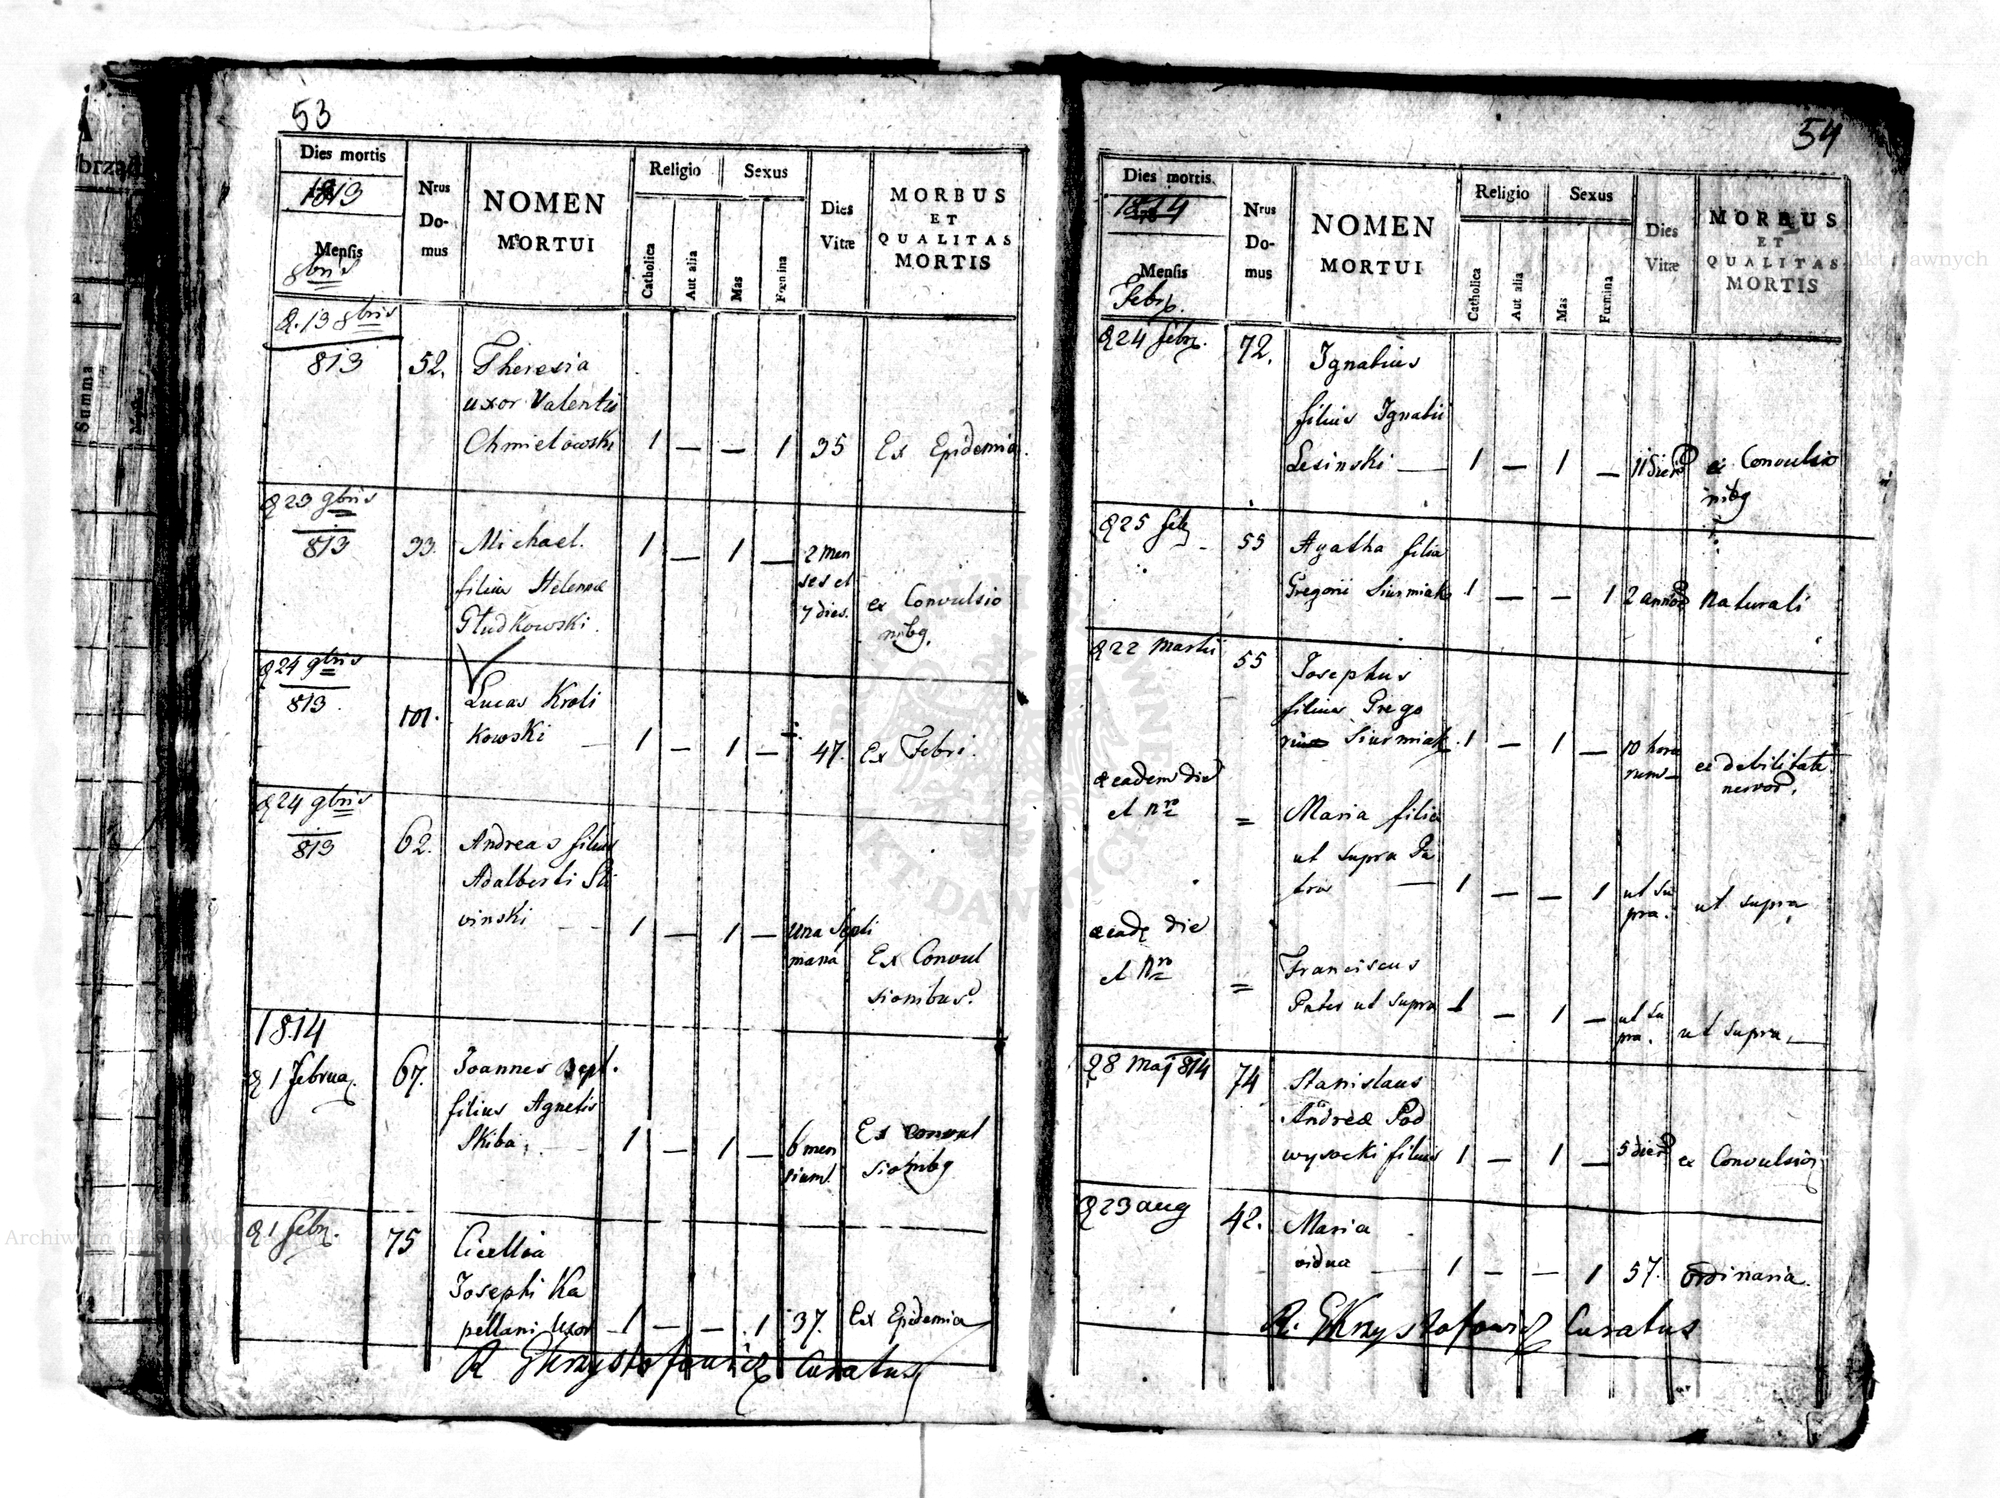 53
Dies mortis
1813
Mensis
8bris
Nrus
Do-
mus
NOMEN
MORTUI
Religio
Catholica
Aut alia
Sexus
Mas
Fœmina
Dies
Vitæ
MORBUS
ET
QUALITAS
MORTIS
13 8bris
813
52.
Theresia
uxor Valentii
Chmielowski
1 — — 1 35 Ex Epidemia.
23 9bris
813
33.
Michael.
filius Helenæ
Głudkowski.
1 — 1 —
2 Men
ses et
7 dies.
ex Convulsio
nibg.
24 9bris
813
101.
Lucas Kroli
kowski
1 — 1 — 47. Ex Febri.
24 9bris
813
62.
Andreas filius
Adalberti Sli
vinski
1 — 1 —
una Septi
mana
Ex Convul
sionibus.
1814
1 Februa.
67.
Joannes Bapt.
filius Agnetis
Skiba.
1 — 1 —
6 men
sium.
Ex convul
sionibg
1 Febr.
75
Cicellia
Josephi Ka
pellani Uxor
1 — — 1 37. Ex Epidemia
R. GKrzysztofowicz Curatus
54
Dies mortis.
1814
Mensis
Febr.
Nrus
Do-
mus
NOMEN
MORTUI
Religio
Catholica
Aut alia
Sexus
Mas
Fœmina
Dies
Vitæ
MORBUS
ET
QUALITAS
MORTIS
24 Febr.
72.
Ignatius
filius Ignatii
Lesinski
1 — 1 — 11 dier
ex Convulsio
nibg
25 Feb
55
Agatha filia
Gregorii Siurmiak
1 — — 1 2 annor naturali
22 Martii
55
Josephus
filius Grego
rii Siurmiak.
1 — 1 —
10 hora
rum
ex debilitate
nervor.
eadem die
et nro
=
Maria filia
ut supra Pa
tris
1 — — 1
ut su
pra.
ut supra
ead die
et Nro
=
Franciscus
Pater ut supra
1 — 1 —
ut su
pra.
ut supra.
8 Maj 814
74
Stanislaus
Andreæ Pod
wysocki filius
1 — 1 — 5 dier ex Convulsio
23 aug
42.
Maria
vidua
1 — — 1 57. ordinaria.
R. GKrzysztofowicz Curatus
Summa